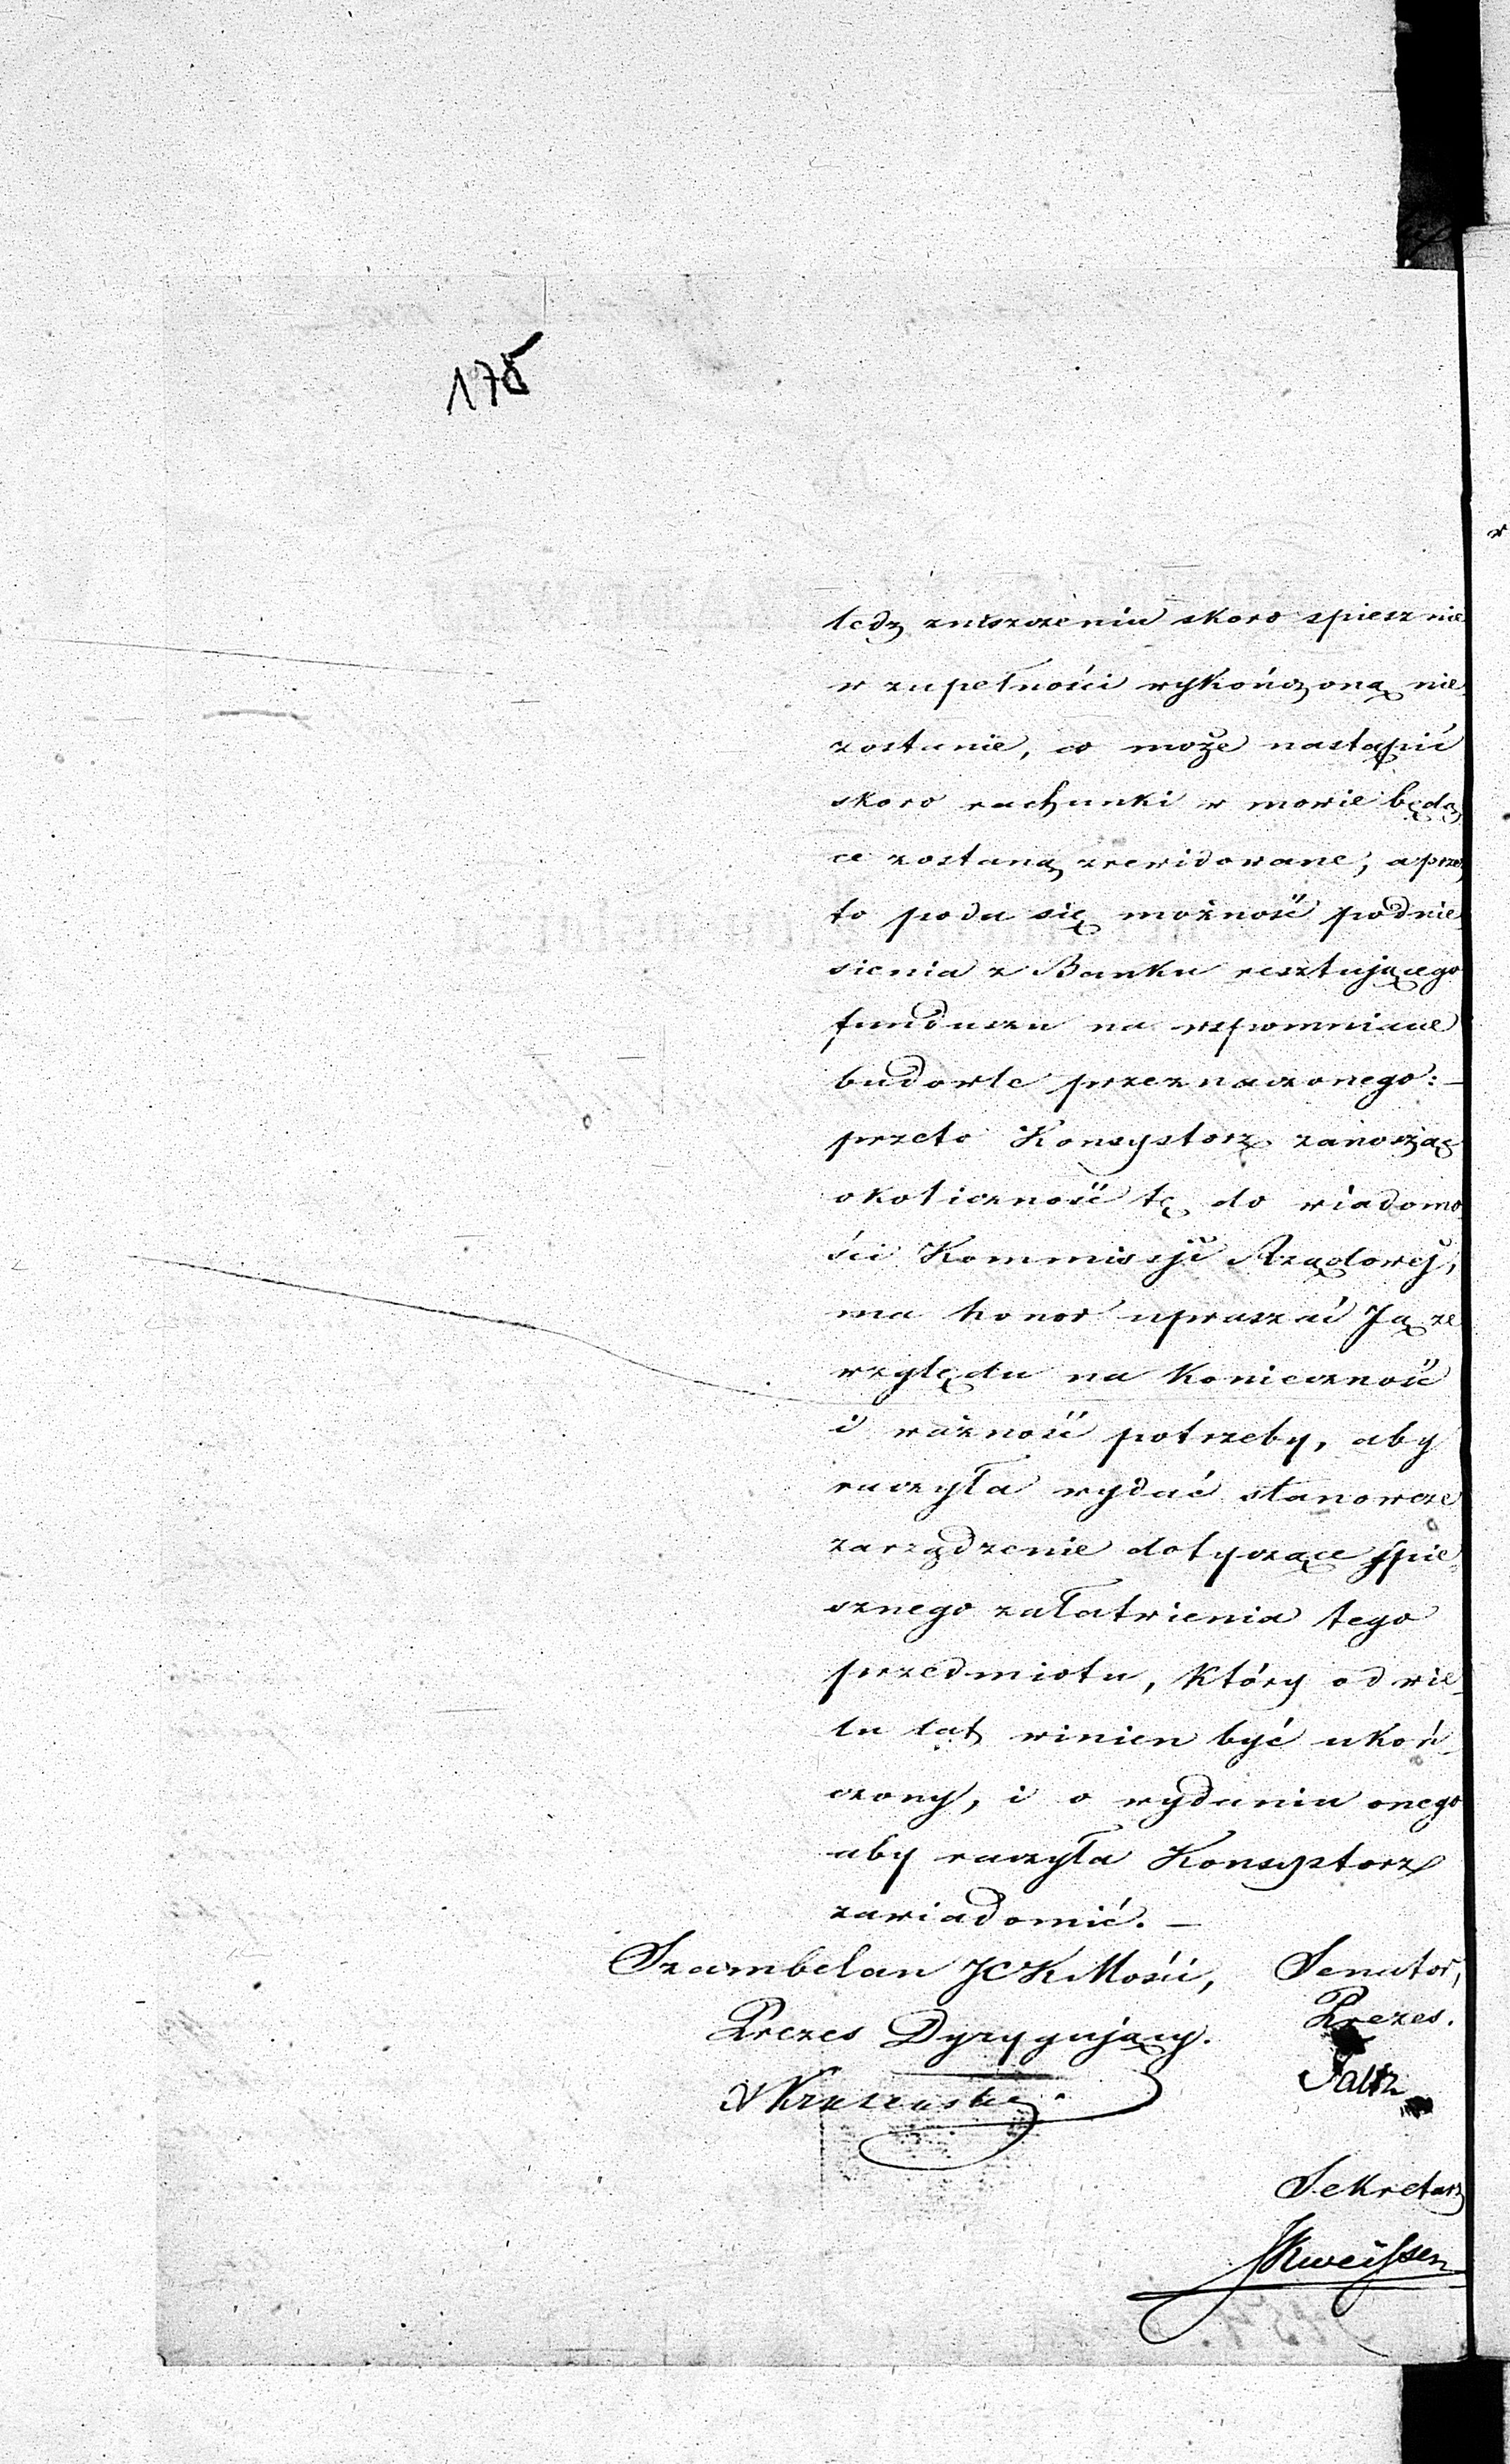 175
ledz zniszczeniu skoro spiesznie
w zupełności wykończoną nie
zostanie, co może nastąpić
skoro rachunki w mowie będą
ce zostaną zrewidowane, a przez
to poda się możność podnie
sienia z Banku resztującego
funduszu na wspomniane
budowle przeznaczonego:—
przeto Konsystorz zanosząc
okoliczność tę do wiadomo
ści Kommissyi Rządowej,
ma honor upraszać Ją ze
względu na konieczność
i ważność potrzeby, aby
raczyła wydać stanowcze
zarządzenie dotyczące spie
sznego załatwienia tego
przedmiotu, który od wie
lu lat winien być ukoń
czony, i o wydaniu onego
aby raczyła Konsystorz
zawiadomić.—
Szambelan JCK Mości, Senator,
Prezes Dyrygujący. Prezes.
Sekretarz